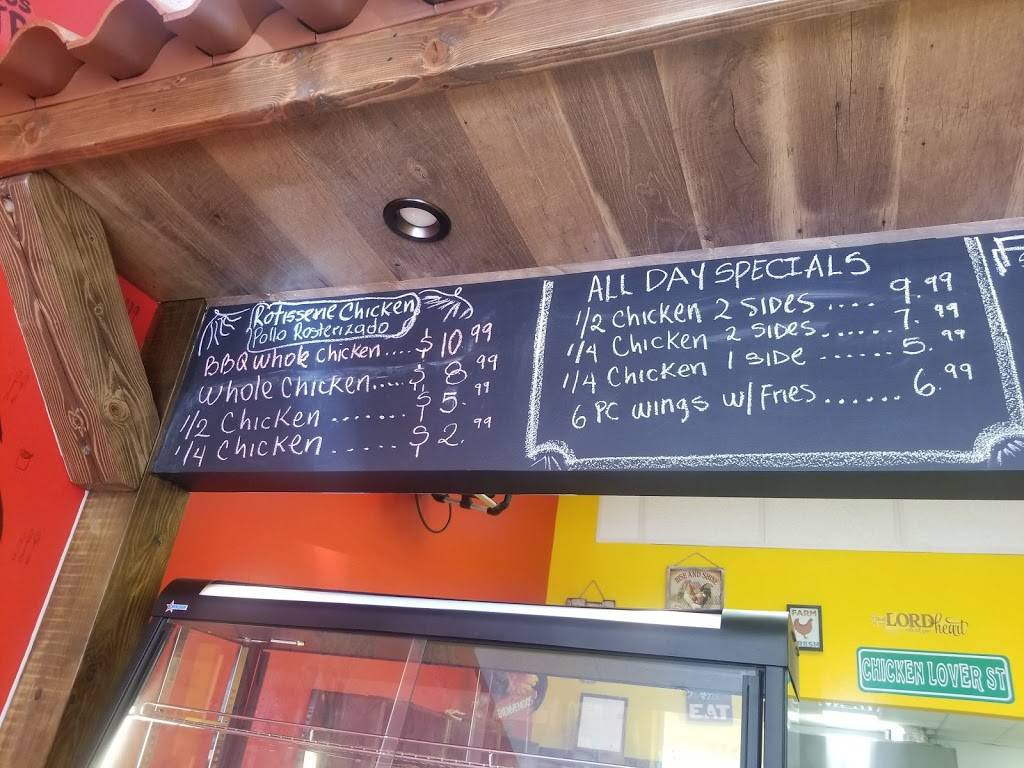 Rotisserie Chicken
Pollo Rosterizado
BBQ Whole Chicken.... $ 10.99
Whole Chicken..... $ 8.99
1/2 Chicken ....... $ 5.99
1/4 Chicken ...... $ 2.99
ALL DAY SPECIALS
1/2 Chicken 2 SIDES .... 9.99
1/4 Chicken 2 SIDES...... 7.99
1/4 Chicken 1 SIDE ...... 5.99
6 PC wings w/Fries...... 6.99
RISE AND SHINE
FARM
FRESH
LORD
heart
CHICKEN LOVER ST
EAT